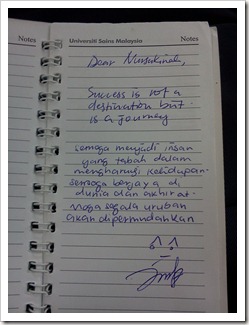 Notes
Universiti Sains Malaysia
Notes
Dear Nursakinah,
Success is not a
destination but
is a journey
Semoga menjadi insan
yang tabah dalam
mengharungi kehidupan.
Semoga berjaya di
dunia dan akhirat.
Moga segala urusan
akan dipermudahkan